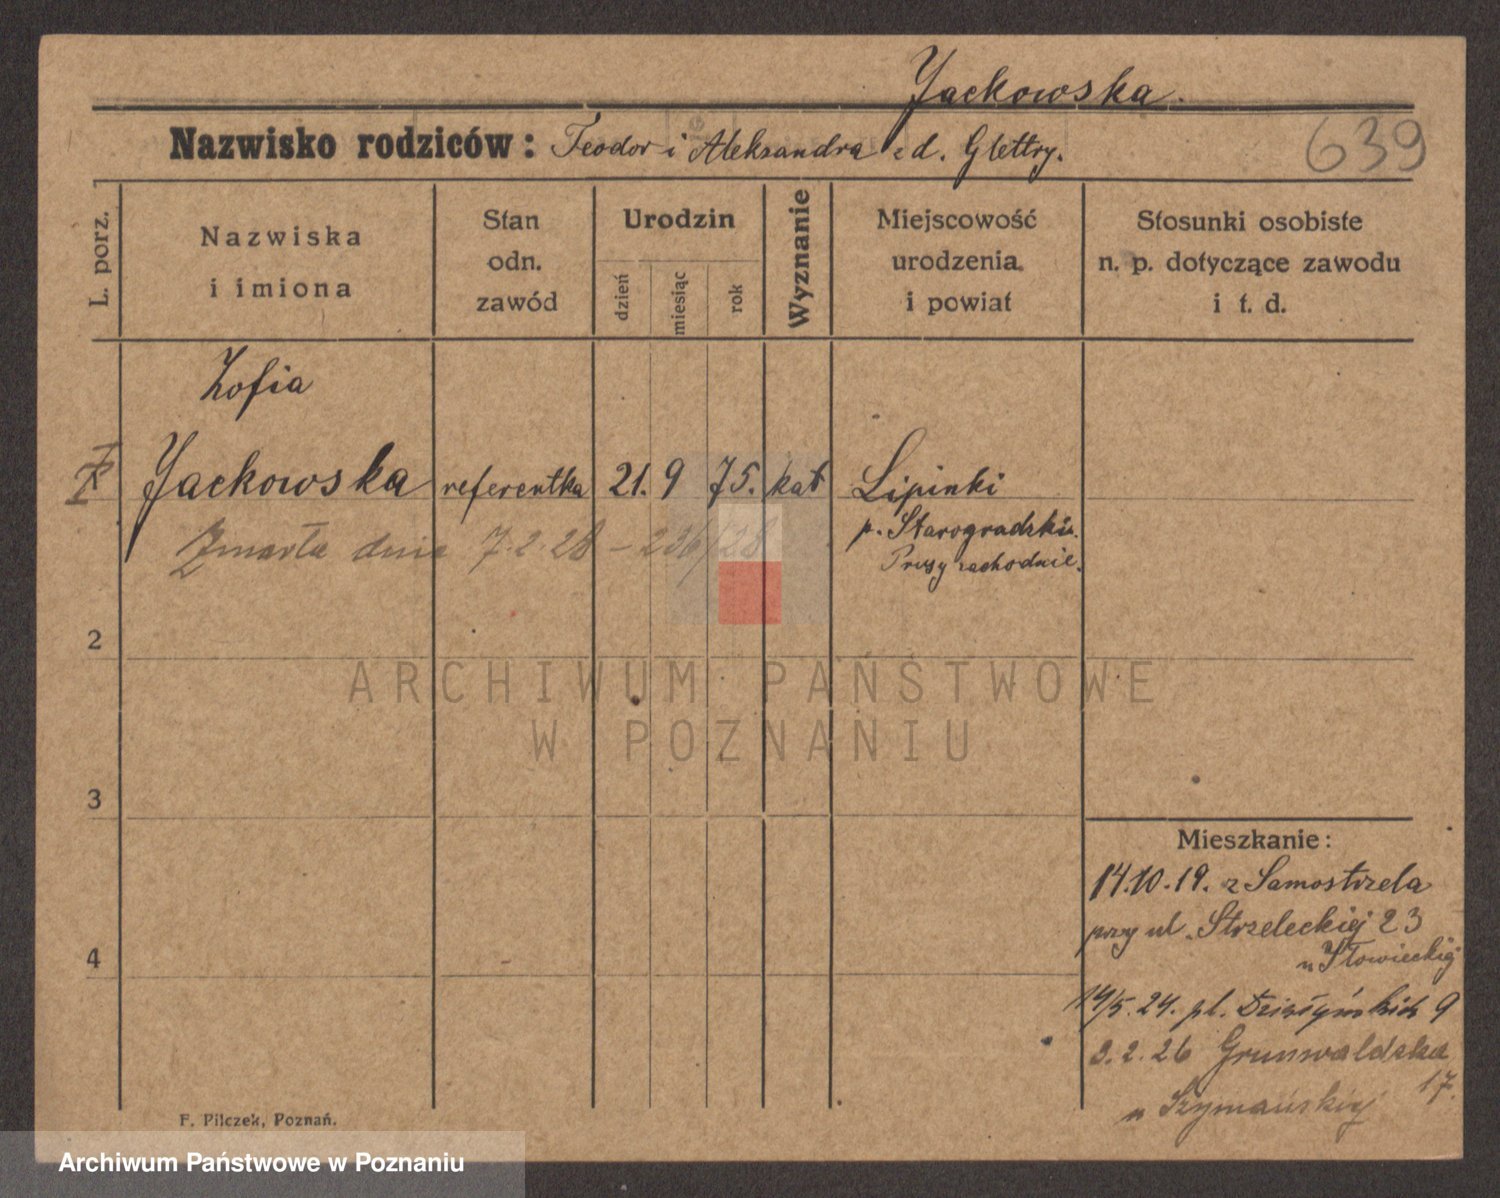 Jackowska.
Nazwisko rodziców: Teodor i Aleksandra z d. Glettry.
639
L. porz.
Nazwiska
i imiona
Stan
odn.
zawód
Urodzin
dzień
miesiąc
rok
Wyznanie
Miejscowość
urodzenia
i powiat
Stosunki osobiste
n. p. dotyczące zawodu
i t. d.
Zofia
Jackowska referentka 21. 9 75. kat Lipinki
p. Starogradzkie.
Prusy zachodnie.
Zmarła dnia 7.2.28 – 236/28
2
3
4
Mieszkanie:
14.10.19. z Samostrzela
przy ul. Strzeleckiej 23
u Iłowieckiej
14/5.24. pl. Działyńskich 9
3.2.26 Grunwaldzka
17.
u Szymańskiej
F. Pilczek, Poznań.
ARCHIWUM PAŃSTWOWE
W POZNANIU
Archiwum Państwowe w Poznaniu